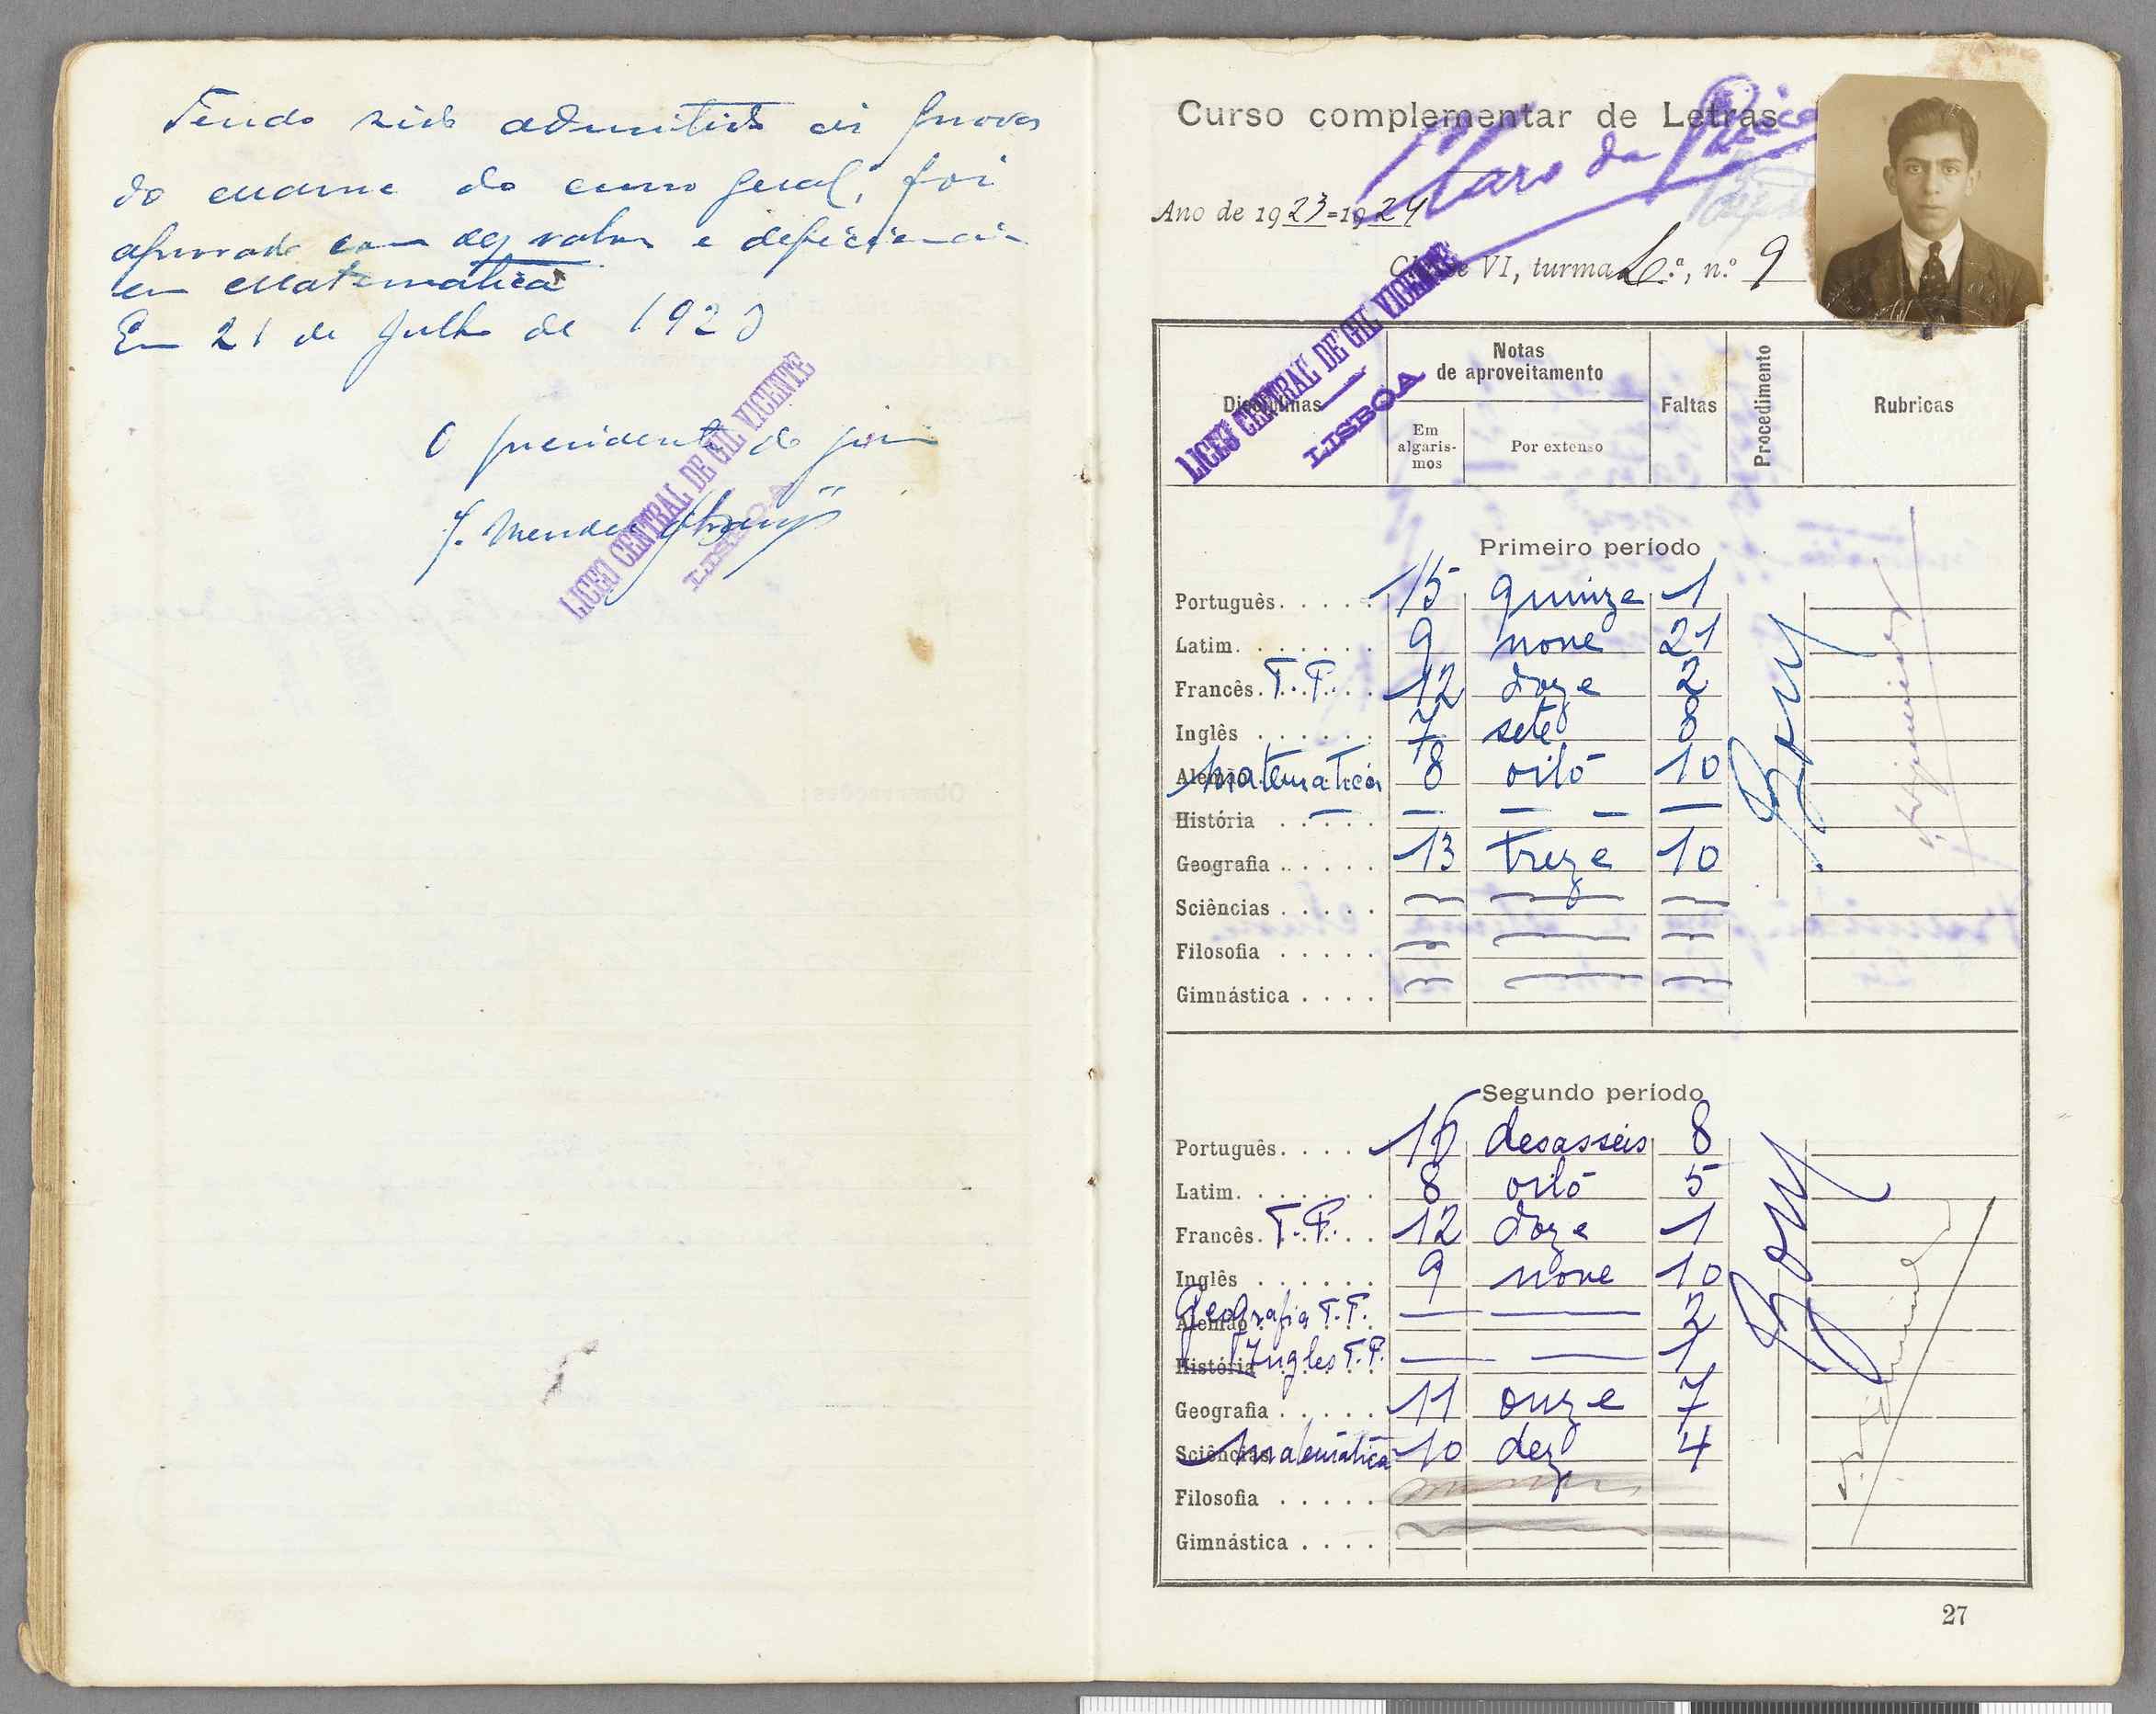 Tendo sido admitido ás provas
do exame do curso geral, foi
aprovado com dez valores e deficiencia
em Matematica
Em 21 de Julho de 1923
O presidente do juri
J. Mendes
LICEU CENTRAL DE GIL VICENTE
LISBOA
Curso complementar de Letras
Claro da
Ano de 1923=1924
Classe VI, turma L.ª, n.º 9
LICEU CENTRAL DE GIL VICENTE
LISBOA
Disciplinas Notas de aproveitamento Faltas Procedimento Rubricas
Em algaris-mos Por extenso
Primeiro período
Português. . . . . 15 quinze 1
Latim. . . . . . . 9 nove 21
Francês. T. P. . . . 12 doze 2
Inglês . . . . . . 7 sete 8
Alemão Matematica 8 oito 10
História . . . . . — — — —
Geografia . . . . . 13 treze 10
Sciências . . . . .
Filosofia . . . . .
Gimnástica . . . .
Bom
Segundo período
Português. . . . . 16 desasseis 8
Latim. . . . . . . 8 oito 5
Francês. T. P. . . . 12 doze 1
Inglês . . . . . . 9 nove 10
Alemão Geografia T. P. — — 2
História Ingles T. P. — — 1
Geografia . . . . . 11 onze 7
Sciências Matemática 10 dez 4
Filosofia . . . . .
Gimnástica . . . .
Bom
27